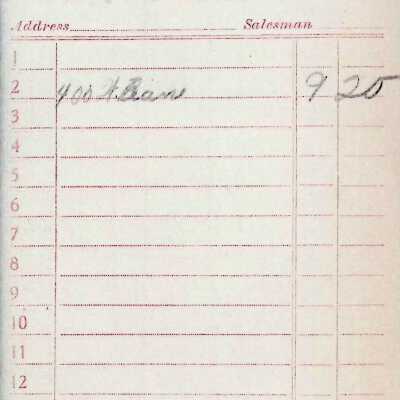 Address Salesman
1
2 400 9 20
3
4
5
6
7
8
9
10
11
12